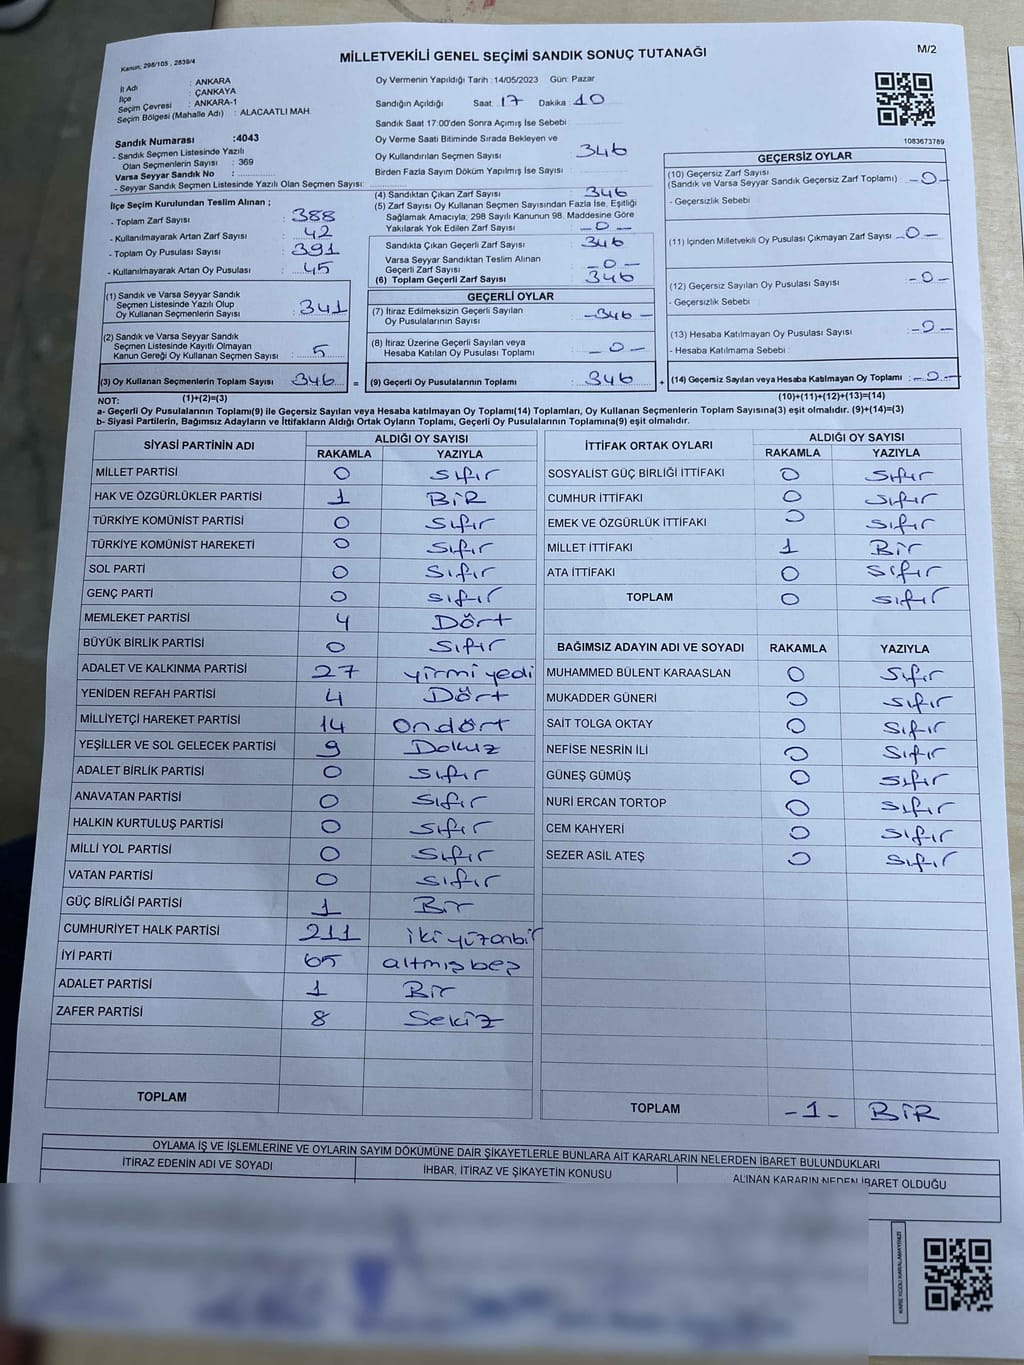 M/2
MİLLETVEKİLİ GENEL SEÇİMİ SANDIK SONUÇ TUTANAĞI
Kanun: 298/105 , 2839/4
İl Adı : ANKARA
İlçe : ÇANKAYA
Seçim Çevresi : ANKARA-1
Seçim Bölgesi (Mahalle Adı) : ALACAATLI MAH.
Sandık Numarası :4043
- Sandık Seçmen Listesinde Yazılı
Olan Seçmenlerin Sayısı : 369
Varsa Seyyar Sandık No :
- Seyyar Sandık Seçmen Listesinde Yazılı Olan Seçmen Sayısı:
İlçe Seçim Kurulundan Teslim Alınan ;
- Toplam Zarf Sayısı : 388
- Kullanılmayarak Artan Zarf Sayısı : 42
- Toplam Oy Pusulası Sayısı : 391
- Kullanılmayarak Artan Oy Pusulası : 45
(1) Sandık ve Varsa Seyyar Sandık
Seçmen Listesinde Yazılı Olup
Oy Kullanan Seçmenlerin Sayısı : 341
(2) Sandık ve Varsa Seyyar Sandık
Seçmen Listesinde Kayıtlı Olmayan
Kanun Gereği Oy Kullanan Seçmen Sayısı : 5
(3) Oy Kullanan Seçmenlerin Toplam Sayısı 346 =
Oy Vermenin Yapıldığı Tarih :14/05/2023 Gün: Pazar
Sandığın Açıldığı Saat: 17 Dakika: 10
Sandık Saat 17:00'den Sonra Açımış İse Sebebi :
Oy Verme Saati Bitiminde Sırada Bekleyen ve
Oy Kullandırılan Seçmen Sayısı : 346
Birden Fazla Sayım Döküm Yapılmış İse Sayısı :
(4) Sandıktan Çıkan Zarf Sayısı : 346
(5) Zarf Sayısı Oy Kullanan Seçmen Sayısından Fazla İse, Eşitliği
Sağlamak Amacıyla; 298 Sayılı Kanunun 98. Maddesine Göre
Yakılarak Yok Edilen Zarf Sayısı : -0-
Sandıkta Çıkan Geçerli Zarf Sayısı : 346
Varsa Seyyar Sandıktan Teslim Alınan
Geçerli Zarf Sayısı : -0-
(6) Toplam Geçerli Zarf Sayısı : 346
GEÇERLİ OYLAR
(7) İtiraz Edilmeksizin Geçerli Sayılan
Oy Pusulalarının Sayısı : -346-
(8) İtiraz Üzerine Geçerli Sayılan veya
Hesaba Katılan Oy Pusulası Toplamı : -0-
(9) Geçerli Oy Pusulalarının Toplamı : 346 +
1083673789
GEÇERSİZ OYLAR
(10) Geçersiz Zarf Sayısı
(Sandık ve Varsa Seyyar Sandık Geçersiz Zarf Toplamı) : -0-
- Geçersizlik Sebebi
(11) İçinden Milletvekili Oy Pusulası Çıkmayan Zarf Sayısı : -0-
(12) Geçersiz Sayılan Oy Pusulası Sayısı : -0-
- Geçersizlik Sebebi
(13) Hesaba Katılmayan Oy Pusulası Sayısı : -0-
- Hesaba Katılmama Sebebi :
(14) Geçersiz Sayılan veya Hesaba Katılmayan Oy Toplamı : -0-
NOT: (1)+(2)=(3) (10)+(11)+(12)+(13)=(14)
a- Geçerli Oy Pusulalarının Toplamı(9) ile Geçersiz Sayılan veya Hesaba katılmayan Oy Toplamı(14) Toplamları, Oy Kullanan Seçmenlerin Toplam Sayısına(3) eşit olmalıdır. (9)+(14)=(3)
b- Siyasi Partilerin, Bağımsız Adayların ve İttifakların Aldığı Ortak Oyların Toplamı, Geçerli Oy Pusulalarının Toplamına(9) eşit olmalıdır.
SİYASİ PARTİNİN ADI ALDIĞI OY SAYISI
RAKAMLA YAZIYLA
MİLLET PARTİSİ 0 Sıfır
HAK VE ÖZGÜRLÜKLER PARTİSİ 1 BİR
TÜRKİYE KOMÜNİST PARTİSİ 0 Sıfır
TÜRKİYE KOMÜNİST HAREKETİ 0 Sıfır
SOL PARTİ 0 Sıfır
GENÇ PARTİ 0 Sıfır
MEMLEKET PARTİSİ 4 Dört
BÜYÜK BİRLİK PARTİSİ 0 Sıfır
ADALET VE KALKINMA PARTİSİ 27 yirmi yedi
YENİDEN REFAH PARTİSİ 4 Dört
MİLLİYETÇİ HAREKET PARTİSİ 14 Ondört
YEŞİLLER VE SOL GELECEK PARTİSİ 9 Dokuz
ADALET BİRLİK PARTİSİ 0 Sıfır
ANAVATAN PARTİSİ 0 Sıfır
HALKIN KURTULUŞ PARTİSİ 0 Sıfır
MİLLİ YOL PARTİSİ 0 Sıfır
VATAN PARTİSİ 0 Sıfır
GÜÇ BİRLİĞİ PARTİSİ 1 Bir
CUMHURİYET HALK PARTİSİ 211 ikiyüzonbir
İYİ PARTİ 65 altmışbeş
ADALET PARTİSİ 1 Bir
ZAFER PARTİSİ 8 Sekiz
TOPLAM
İTTİFAK ORTAK OYLARI ALDIĞI OY SAYISI
RAKAMLA YAZIYLA
SOSYALİST GÜÇ BİRLİĞİ İTTİFAKI 0 Sıfır
CUMHUR İTTİFAKI 0 Sıfır
EMEK VE ÖZGÜRLÜK İTTİFAKI 0 Sıfır
MİLLET İTTİFAKI 1 Bir
ATA İTTİFAKI 0 Sıfır
TOPLAM 0 Sıfır
BAĞIMSIZ ADAYIN ADI VE SOYADI RAKAMLA YAZIYLA
MUHAMMED BÜLENT KARAASLAN 0 Sıfır
MUKADDER GÜNERİ 0 Sıfır
SAİT TOLGA OKTAY 0 Sıfır
NEFİSE NESRİN İLİ 0 Sıfır
GÜNEŞ GÜMÜŞ 0 Sıfır
NURİ ERCAN TORTOP 0 Sıfır
CEM KAHYERİ 0 Sıfır
SEZER ASİL ATEŞ 0 Sıfır
TOPLAM -1- BİR
OYLAMA İŞ VE İŞLEMLERİNE VE OYLARIN SAYIM DÖKÜMÜNE DAİR ŞİKAYETLERLE BUNLARA AİT KARARLARIN NELERDEN İBARET BULUNDUKLARI
İTİRAZ EDENİN ADI VE SOYADI İHBAR, İTİRAZ VE ŞİKAYETİN KONUSU ALINAN KARARIN NEDEN İBARET OLDUĞU
KARE KODU KARALAMAYINIZ!